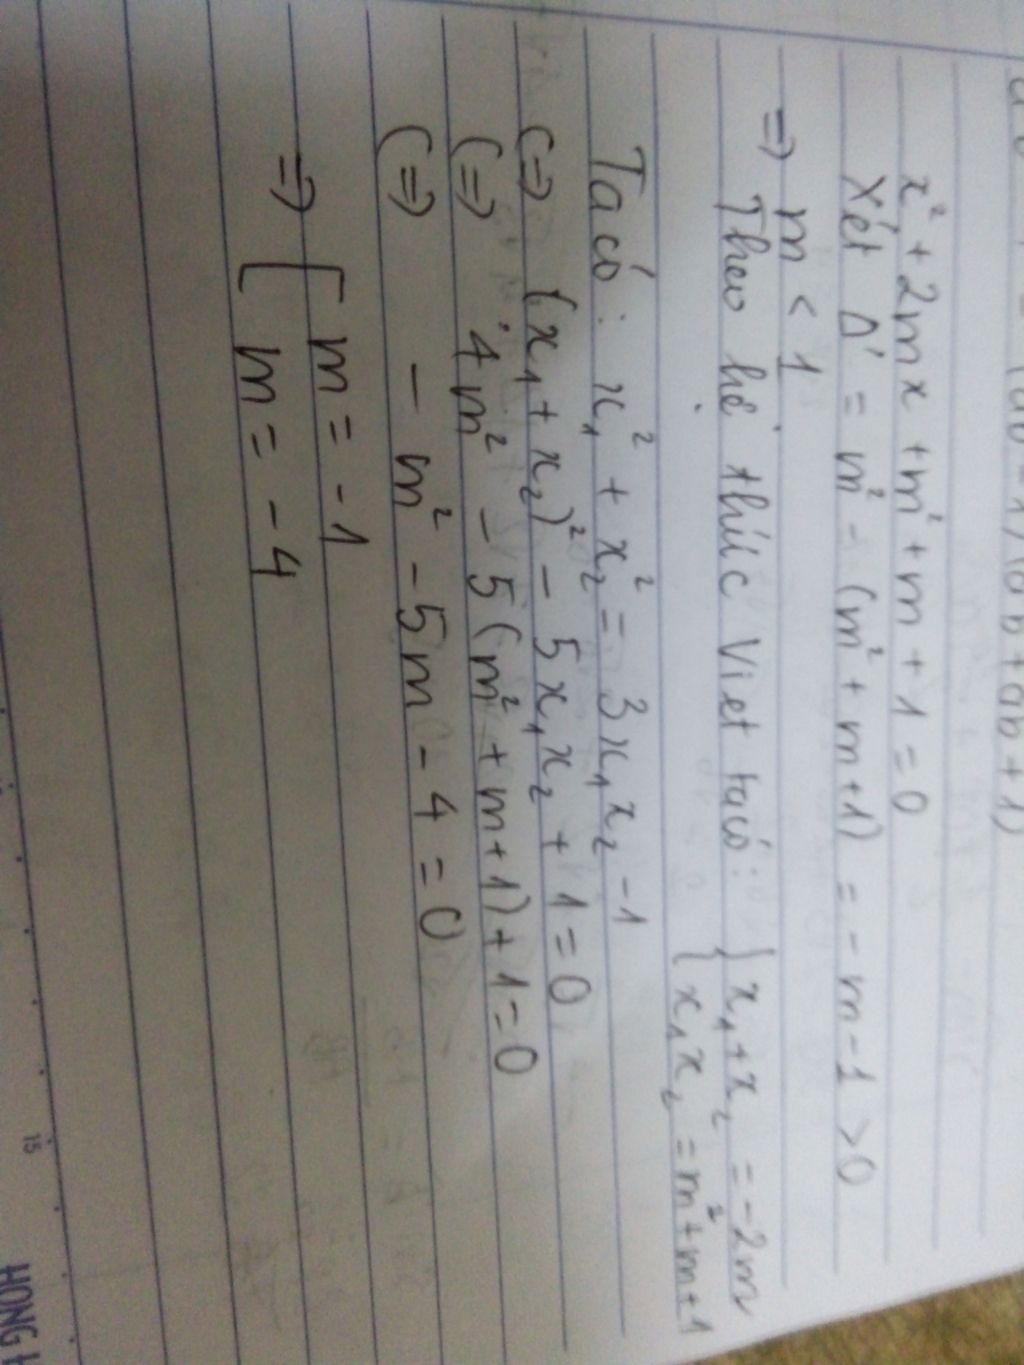 x² + 2mx + m² + m + 1 = 0
Xét Δ' = m² - (m² + m + 1) = - m - 1 > 0
=> m < 1
Theo hệ thức Viet ta có: { x₁ + x₂ = - 2m
x₁x₂ = m² + m + 1
Ta có: x₁² + x₂² = 3x₁x₂ - 1
(=> (x₁ + x₂)² - 5x₁x₂ + 1 = 0
(=> 4m² - 5(m² + m + 1) + 1 = 0
(=> - m² - 5m - 4 = 0
=> [ m = - 1
m = - 4
15
HONG